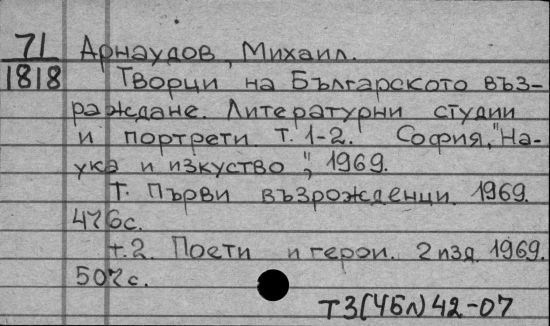 71 Арнаудов, Михаил.
1818 Творци на Българското въз-
раждане. Литературни студии
и портрети. т. 1-2. София, "На-
ука и изкуство", 1969.
Т. Първи възрожденци. 1969.
476с.
т.2. Поети и герои. 2 изд. 1969.
507с.
Т3(4Бл)42-07